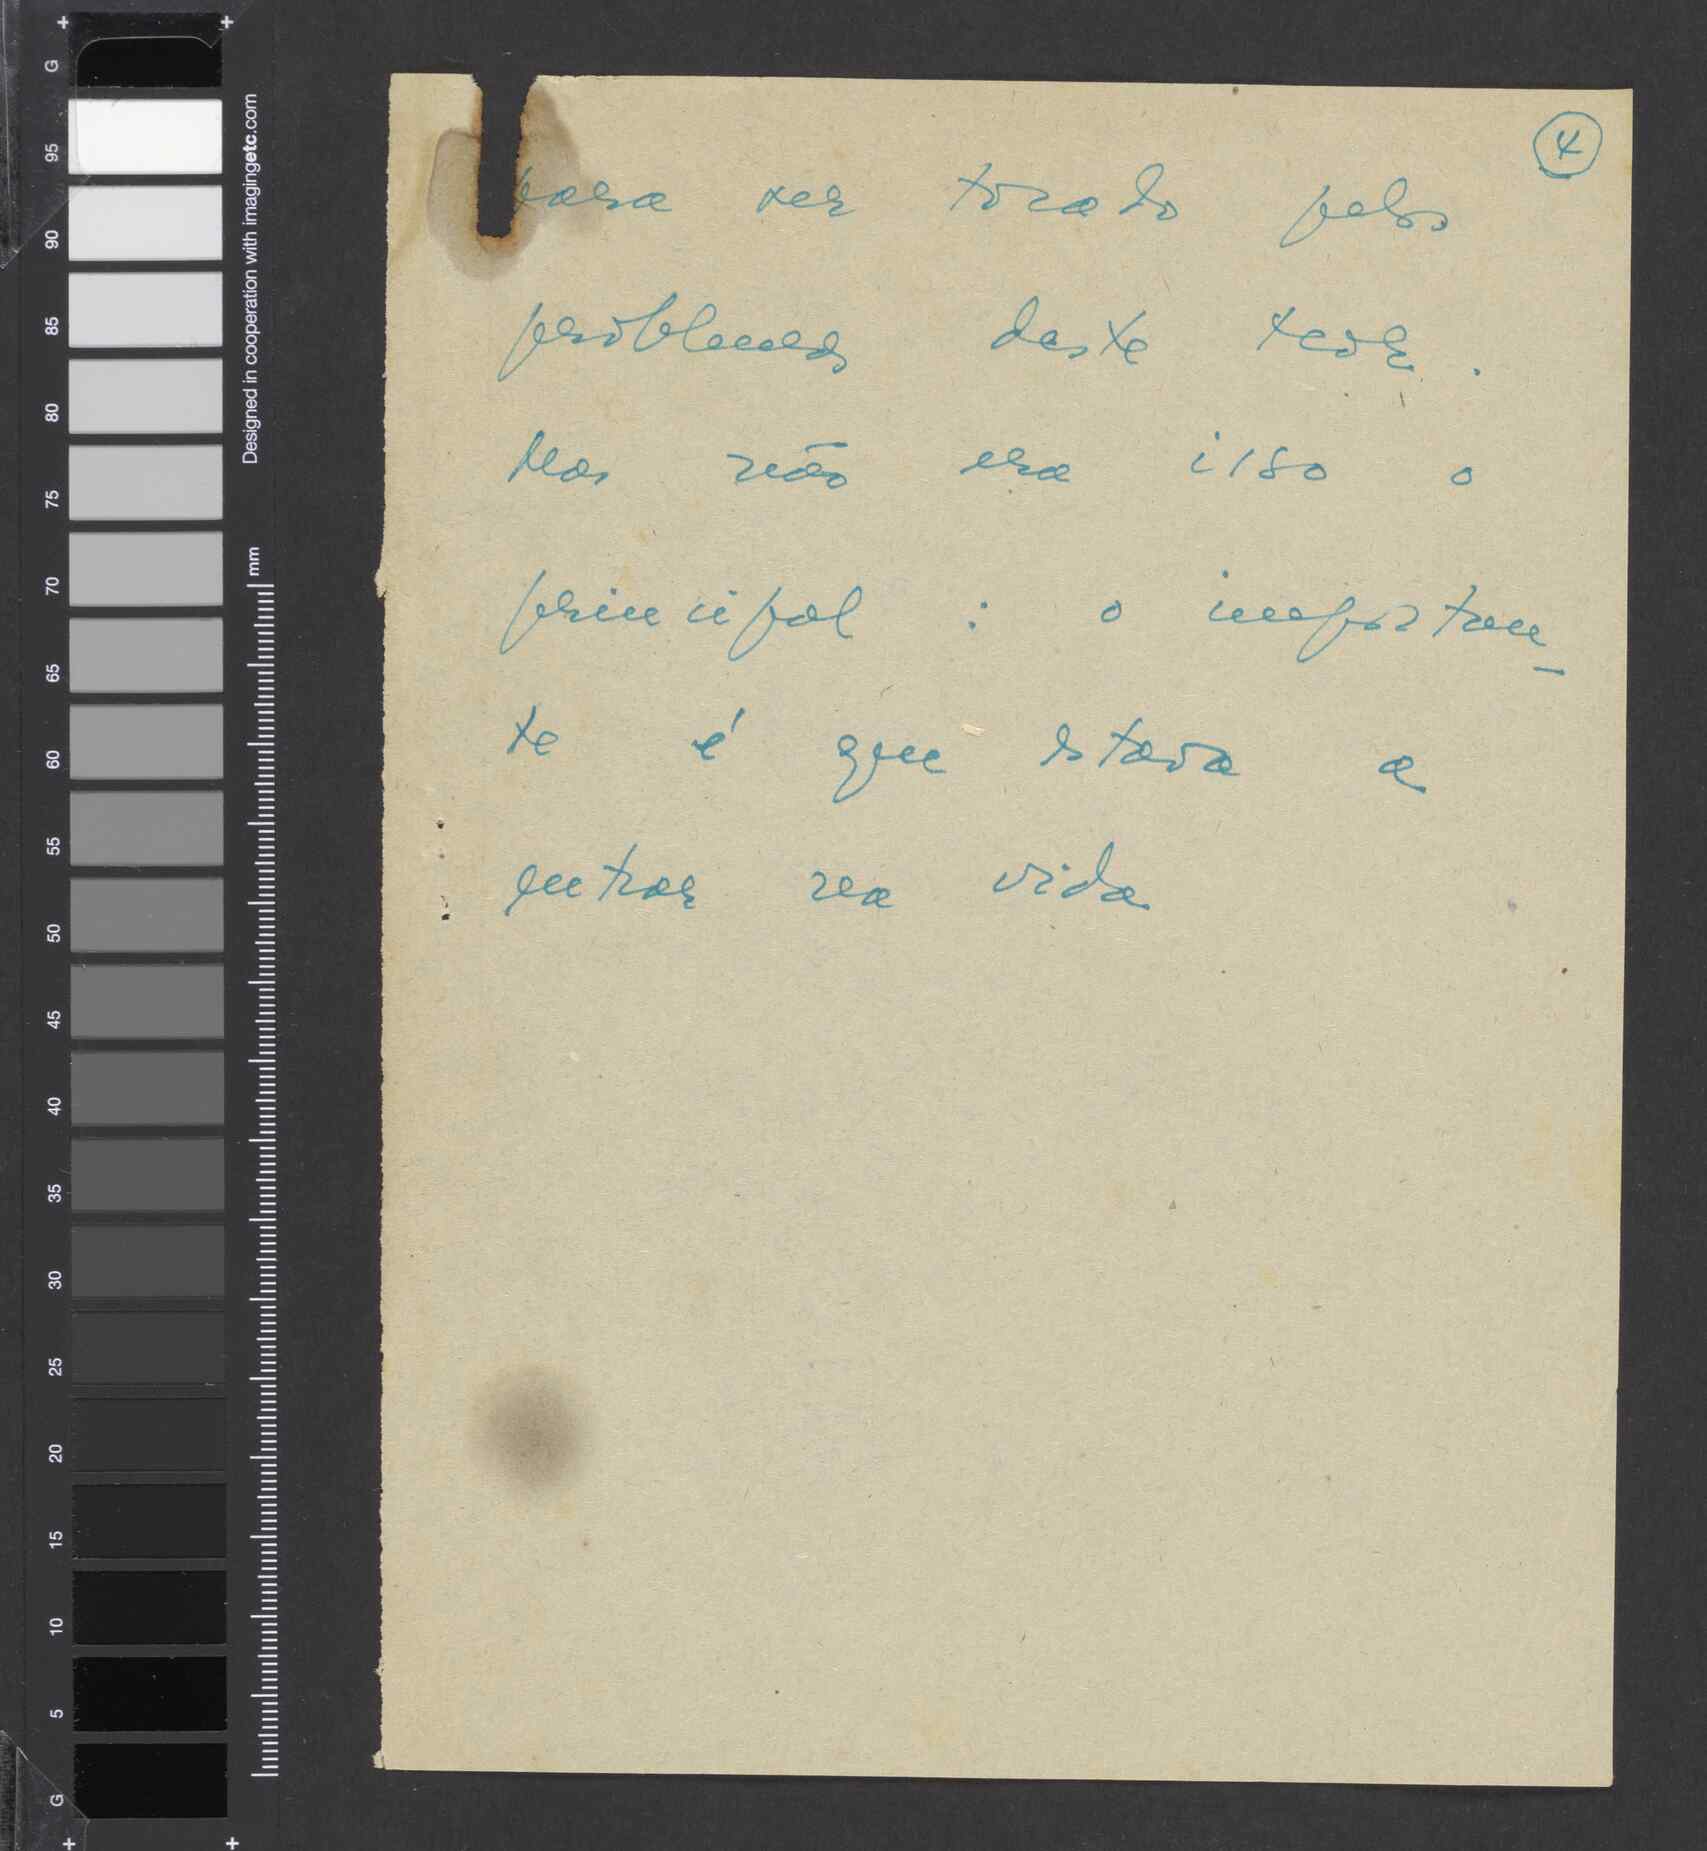 4
para ser tocado pelos
problemas deste teor.
Mas não era isso o
principal : o importan-
te é que estava a
entrar na vida
Designed in cooperation with imagingetc.com
mm
G
95
90
85
80
75
70
65
60
55
50
45
40
35
30
25
20
15
10
5
G